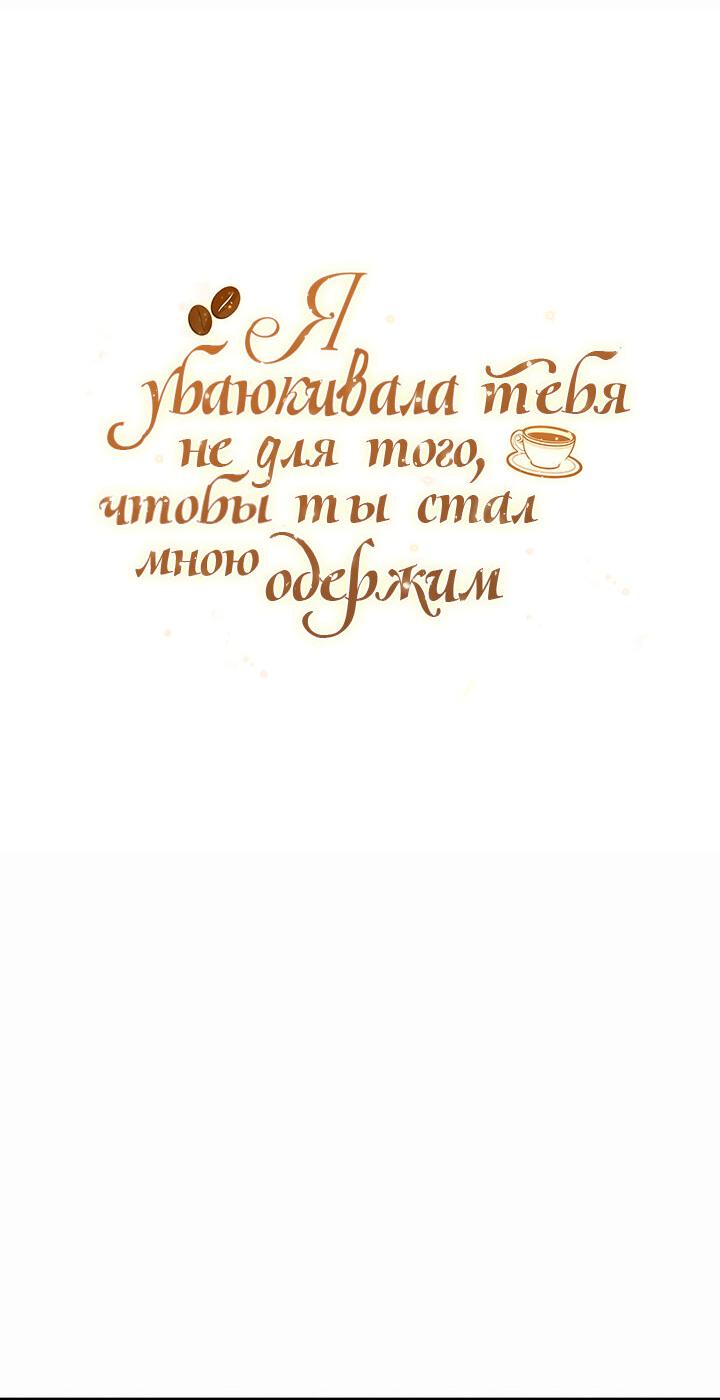 Я
убаюкивала тебя
не для того,
чтобы ты стал
мною одержим